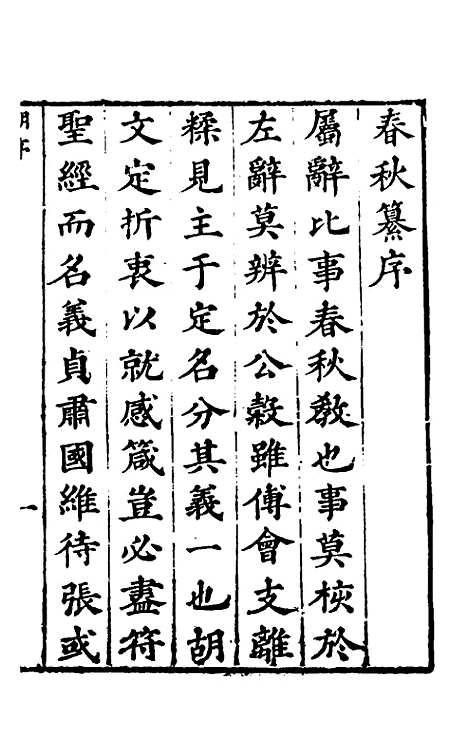 春秋纂序
屬辭比事春秋教也事莫核於
左辭莫辨於公穀雖傅會支離
糅見主于定名分其義一也胡
文定折衷以就感箴豈必盡符
聖經而名義貞肅國維待張或
一